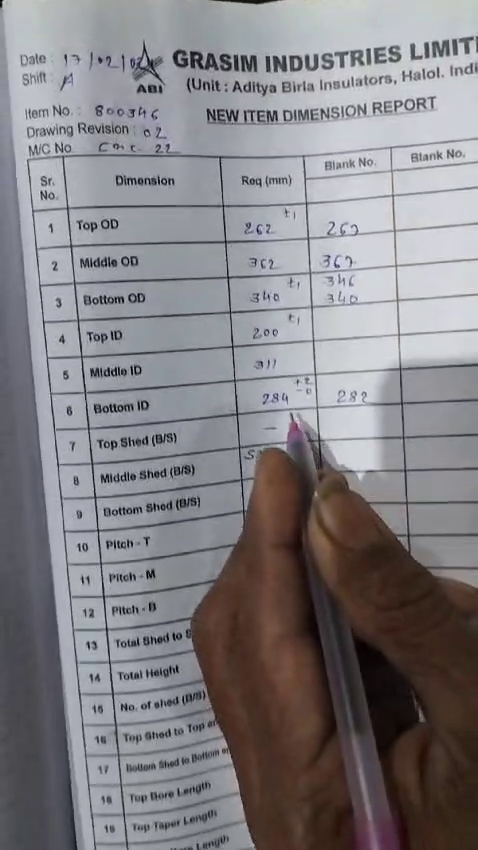 Date : 17/02/
GRASIM INDUSTRIES LIMIT
Shift : A
ABI
(Unit : Aditya Birla Insulators, Halol. Indi
Item No. : 800346
NEW ITEM DIMENSION REPORT
Drawing Revision : 02
M/C No. CNC-22
Sr. No. Dimension Req (mm) Blank No. Blank No.
1 Top OD 262 ±1 267
2 Middle OD 362 367
3 Bottom OD 340 ±1 346 340
4 Top ID 200 ±1
5 Middle ID 311
6 Bottom ID 284 +2 -0 282
7 Top Shed (B/S) -
8 Middle Shed (B/S)
9 Bottom Shed (B/S)
10 Pitch - T
11 Pitch - M
12 Pitch - B
13 Total Shed to S
14 Total Height
15 No. of shed (B/S)
16 Top Shed to Top
17 Bottom Shed to Bottom
18 Top Bore Length
19 Top Taper Length
Length